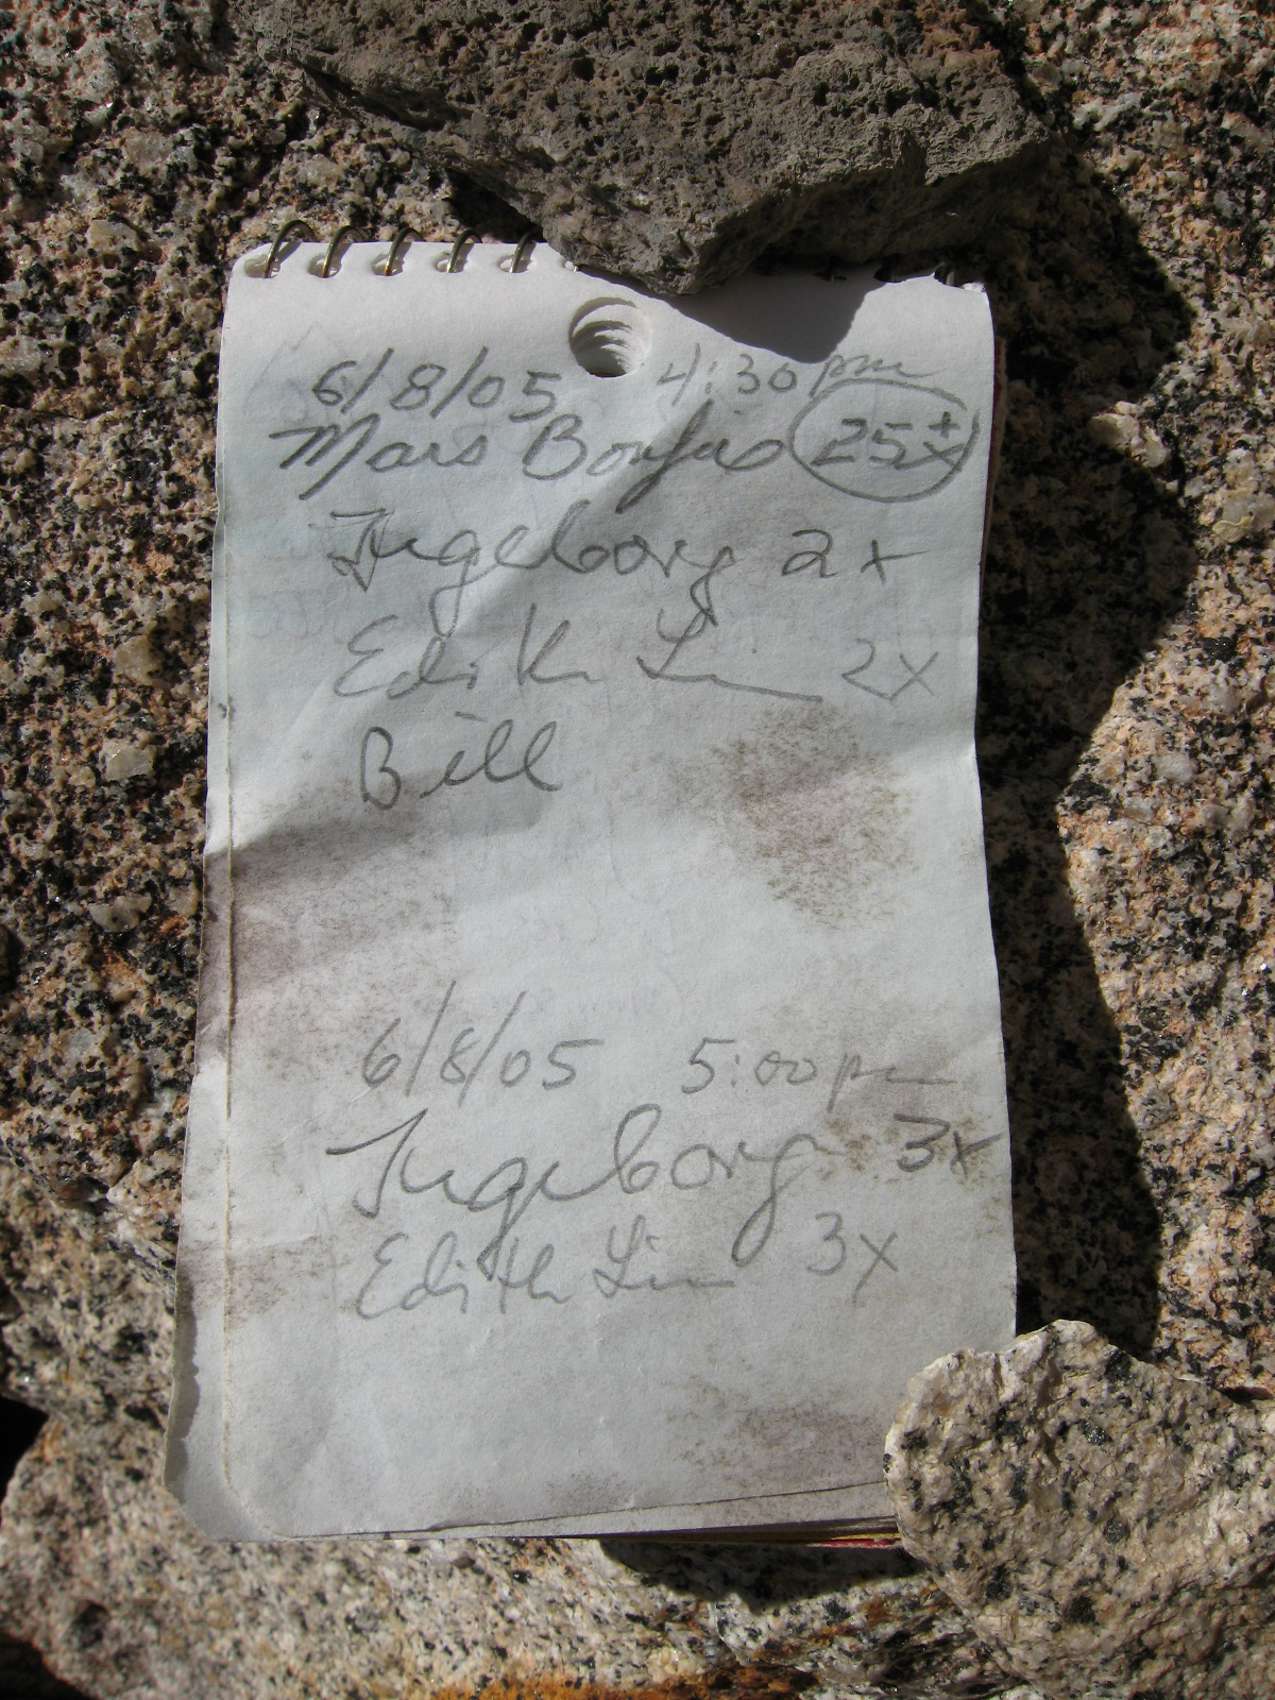 6/8/05 4:30 pm
Mars Bonfire 25+x
Ingeborg 2x
Edith Lin 2x
Bill
6/8/05 5:00 pm
Ingeborg 3x
Edith Lin 3x